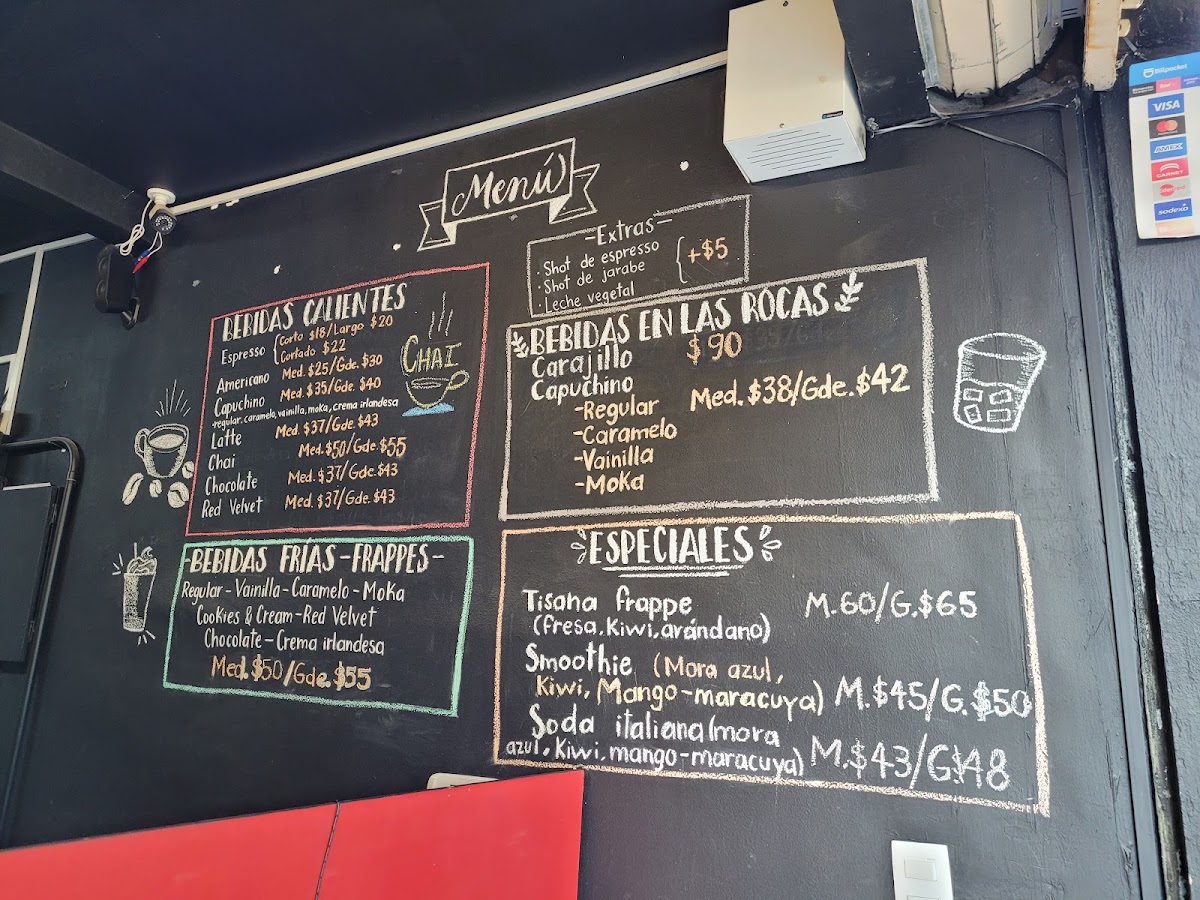 Menú
-Extras-
· Shot de espresso
· Shot de jarabe
· Leche vegetal
+$5
BEBIDAS CALIENTES
Espresso
Corto $18/Largo $20
Cortado $22
Americano Med. $25/Gde. $30
Capuchino Med. $35/Gde. $40
-regular, caramelo, vainilla, moka, crema irlandesa
Latte Med. $37/Gde. $43
Chai Med. $50/Gde. $55
Chocolate Med. $37/Gde. $43
Red Velvet Med. $37/Gde. $43
CHAI
BEBIDAS EN LAS ROCAS
Carajillo $90
Capuchino Med. $38/Gde. $42
-Regular
-Caramelo
-Vainilla
-Moka
-BEBIDAS FRÍAS-FRAPPES-
Regular-Vainilla-Caramelo-Moka
Cookies & Cream-Red Velvet
Chocolate-Crema irlandesa
Med. $50/Gde. $55
ESPECIALES
Tisana frappe M.60/G.$65
(fresa, Kiwi, arándano)
Smoothie (Mora azul,
Kiwi, Mango-maracuya) M.$45/G.$50
Soda italiana (mora
azul, Kiwi, mango-maracuya) M.$43/G$48
Billpocket
VISA
AMEX
CARNET
sodexo